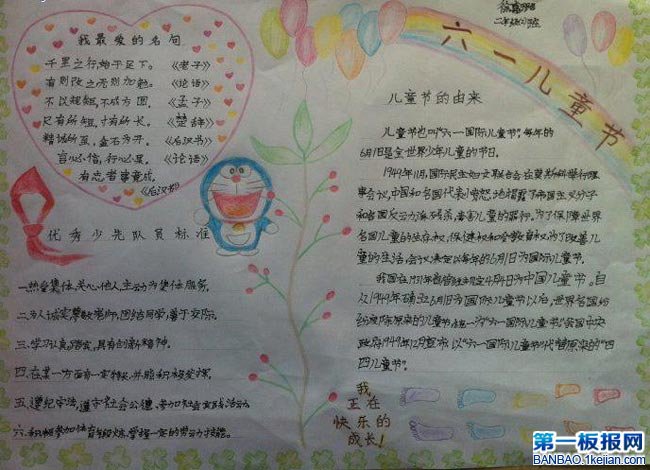 二年级(7)班
六一儿童节
我最爱的名句
千里之行,始于足下。 《老子》
有则改之,无则加勉。 《论语》
不以规矩,不成方圆。 《孟子》
尺有所短,寸有所长。 《楚辞》
精诚所至,金石为开。 《后汉书》
言必信,行必果。 《论语》
有志者事竟成。
《后汉书》
优秀少先队员标准
一.热爱集体,关心他人,主动为集体服务。
二.为人诚实,尊敬老师,团结同学,善于交际。
三.学习认真踏实,具有创新精神。
四.在某一方面有一定特长,并能积极发挥。
五.遵纪守法,遵守社会公德,参加社会实践活动。
六.积极参加体育锻炼,掌握一定的劳动技能。
儿童节的由来
儿童节也叫"六一国际儿童节",每年的
6月1日是全世界少年儿童的节日。
1949年11月,国际民主妇女联合会在莫斯科举行理
事会议,中国和各国代表愤怒地揭露了帝国主义分子
和各国反动派残杀、毒害儿童的罪行。为了保障世界
各国儿童的生存权、保健权和受教育权,为了改善儿
童的生活,会议决定以每年的6月1日为国际儿童节。
我国在1931年曾规定4月4日为中国儿童节。自
从1949年确立6月1日为国际儿童节以后,世界各国纷
纷废除原来的儿童节,
政府1949年12月宣布以"六一国际儿童节"代替原来的"四
四儿童节"。
我
正在
快乐的
成长!
第一板报网
BANBAO.1kejian.com